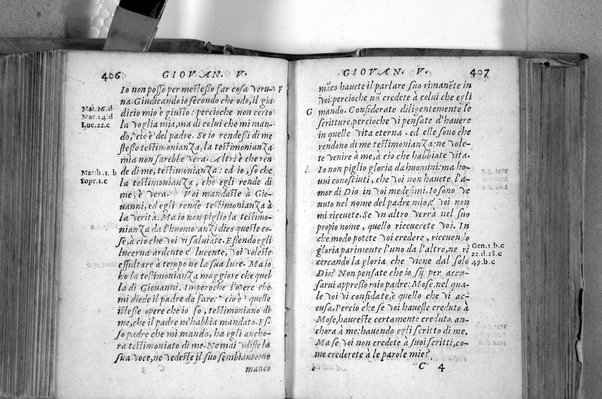 406 GIOVAN. V.
Io non posso per mestesso far cosa veru
na. Giudicando io secondo che odo, il giu
dicio mio è giusto: percioche non cerco
la voglia mia, ma di colui che mi man-
do, cio è del padre. Se io rendessi di me
stesso testimonianza, la testimonianza
mia non sarebbe vera. Altri è che ren
de di me, testimonianza: ed io, so che
la testimonianza, che egli rende di
me, è vera. Voi mandaste à Gio-
uanni, ed egli rende testimonianza à
la verità. Ma io non piglio la testimo-
nianza da l'huomo: anzi dico queste co-
se, à cio che voi vi saluiate. Essendo egli
lucerna ardente è lucente, voi voleste
essultare à tempo ne la sua luce. Ma io
ho la testimonianza maggiore che quel
la di Giouanni. Imperoche l'opere che
mi diede il padre da fare: cio è quelle
istesse opere che io fo, testimoniano di
me, che il padre m'habbia mandato. Es
so padre che mi mando, ha egli ancho-
ra testimoniato di me. Ne mai vdiste la
sua voce, ne vedeste il suo sembiante: ne
manco
Mat. 26. d
Mar. 14. d
Luc. 22. c
Matth. 1. b
Sopr. 1. c
F
GIOVAN. V. 407
māco hauete il parlare suo rimanēte in
voi: percioche nō credete à colui che egli
G mando. Considerate diligentemente le
scritture, percioche vi pensate d'hauere
in quelle vita eterna. ed elle sono che
rendono di me testimonianza: ne vole-
te venire à me, à cio che habbiate vita.
Io non piglio gloria da huomini: ma ho-
vui conosciuti, che voi non hauete l'a-
mor di Dio in voi medesimi. Io sono ve
nuto nel nome del padre mio, è voi non
mi riceuete. Se vn altro verrà nel suo
proprio nome, quello riceuerete voi. In
che modo potete voi credere, riceuendo
gloria parimente l'uno da l'altro, ne ri
cercando la gloria che viene dal solo
Dio? Non pensate che io sij per accu-
sarui appresso mio padre: Mose. nel qua
le voi vi confidate, è quello che vi ac-
cusa. Percio che se voi haueste creduto à
Mose, haureste certamente creduto an-
chora à me: hauendo egli scritto di me.
Ma se voi non credete à suoi scritti, co-
me crederete à le parole mie?
C 4
Gen. 1. b. c
22. d. 18. c
49. b. c